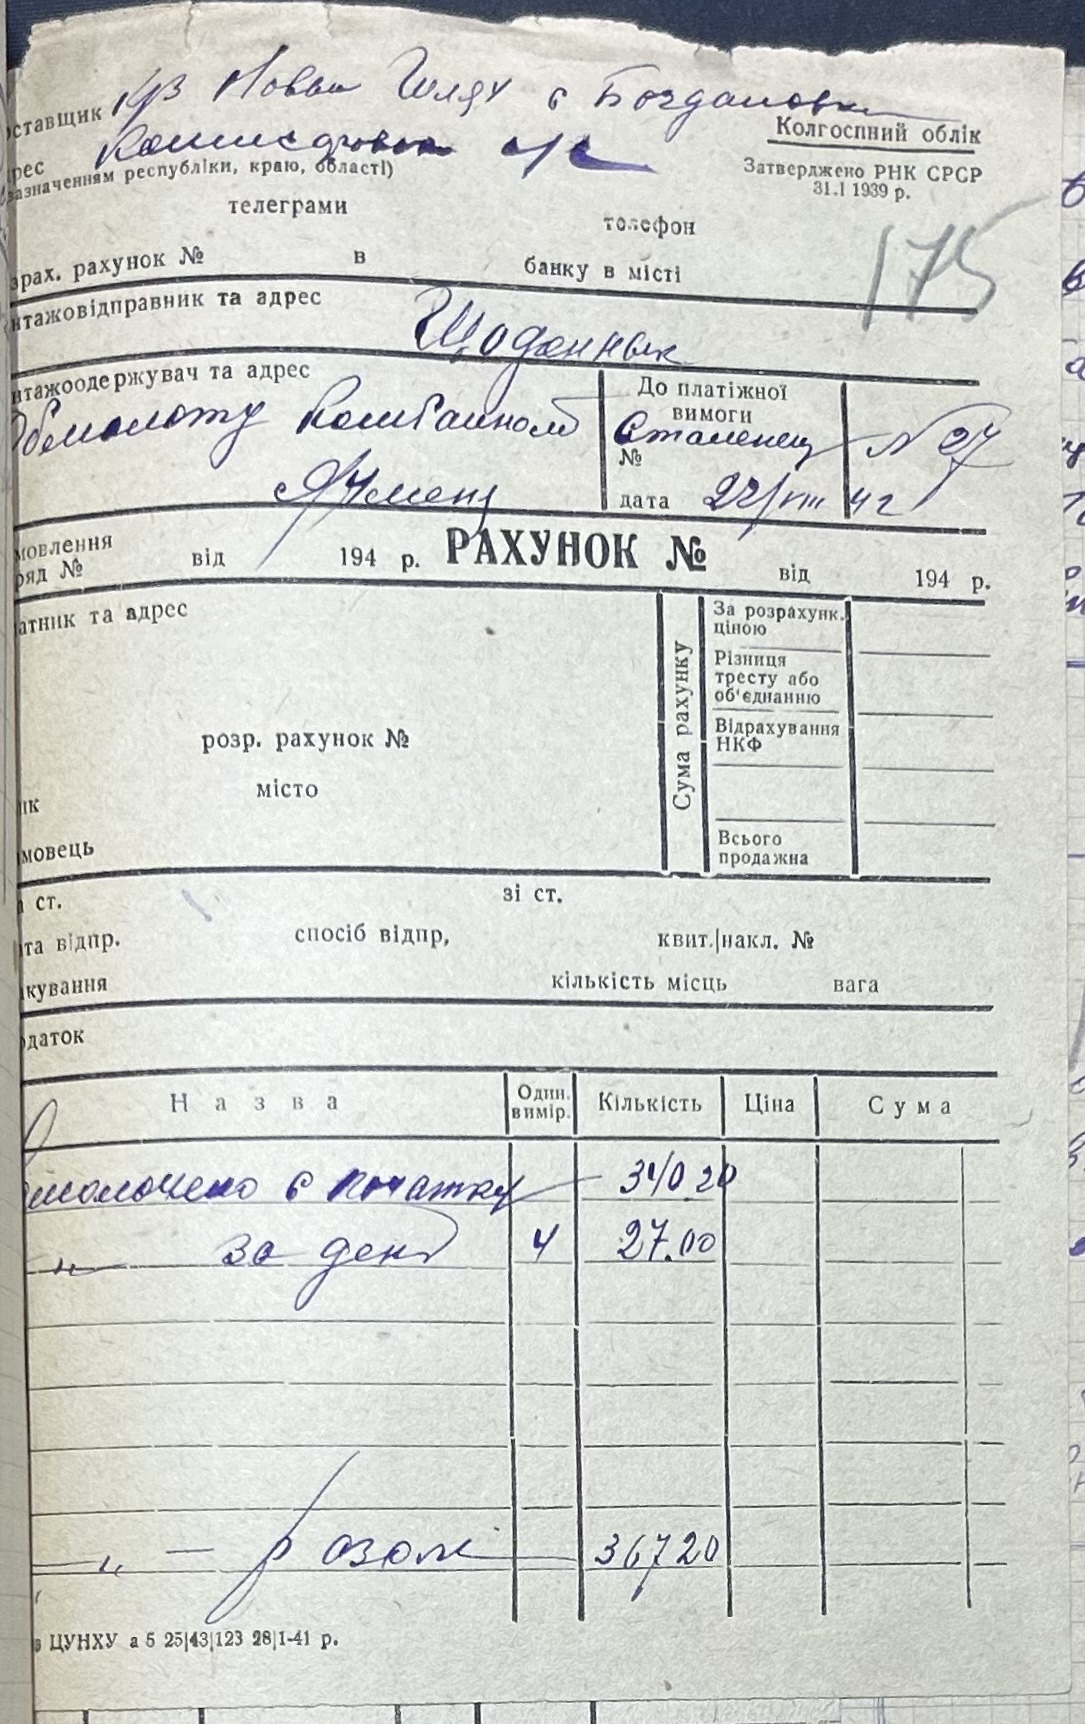 оставщик к/з Новый Шлях с Богдановка
Колгоспний облік
рес
азначенням республіки, краю, області)
Затверджено РНК СРСР
31.I 1939 р.
телеграми телефон
175
зрах. рахунок № в банку в місті
нтажовідправник та адрес
Щоденнык
нтажоодержувач та адрес
До платіжної
вимоги
Обмолоту Комбайном Сталенец № 27
№
Ячмень
дата 22/VIII 4 г
мовлення
ряд № від 194 р. РАХУНОК № від 194 р.
атник та адрес
За розрахунк.
ціною
Різниця
тресту або
об'єднанню
Сума рахунку
Відрахування
НКФ
розр. рахунок №
місто
ік
Всього
продажна
мовець
а ст. зі ст.
та відпр. спосіб відпр, квит.|накл. №
кування кількість місць вага
одаток
Назва Один. вимір. Кількість Ціна Сума
молочено с початку 340.20
—"— за день ц 27.00
—"— разом 367 20
в ЦУНХУ а 5 25|43|123 28|1-41 р.